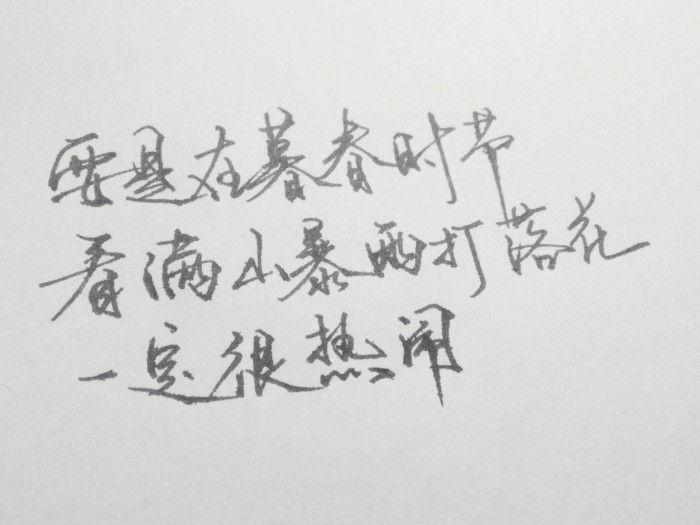 要是在暮春时节
看满山暴雨打落花
一定很热闹